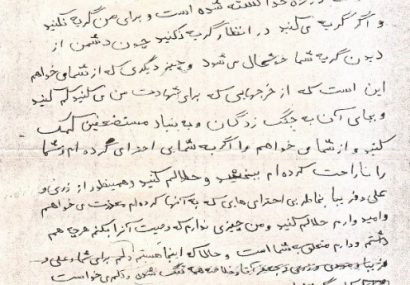 خدا کشته شده است و برای من گریه نکنید
و اگر گریه می کنید در انتظار گریه نکنید چون دشمن از
دیدن گریه شما خوشحال می شود و چیز دیگری که از شما می خواهم
این است که از خرجهایی که برای شهادت من می کنید کم کنید
و بجای آن به جنگ زدگان و به بنیاد مستضعفین کمک
کنید و از شما می خواهم و اگر به شما بی احترامی کرده ام و شما
را ناراحت کرده ام ببخشید و حلالم کنید و همینطور از زری و
علی و فریبا بخاطر بی احترامی هایی که به آنها کرده ام معذرت می خواهم
و امیدوارم حلالم کنید و من چیزی ندارم که وصیت آنرا بکنم هر چه هم
داشتم و دارم متعلق به شما است و حالا که اینجا هستم دلم برای شما و علی و
فریبا و مهدی و زری و جعفر آقا و خلاصه همه تنگ شده و دلم می خواست